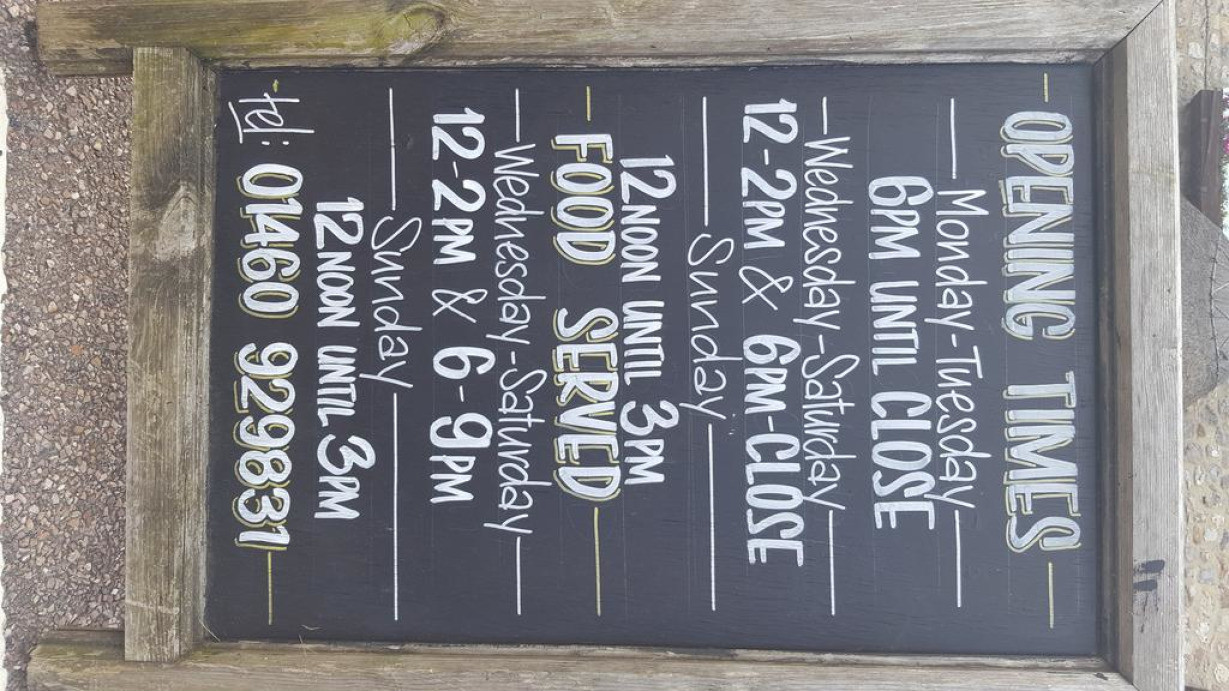 OPENING TIMES
Monday-Tuesday
6PM UNTIL CLOSE
Wednesday-Saturday
12-2PM & 6PM-CLOSE
Sunday
12 NOON UNTIL 3PM
FOOD SERVED
Wednesday-Saturday
12-2PM & 6-9PM
Sunday
12 NOON UNTIL 3PM
tel: 01460 929831